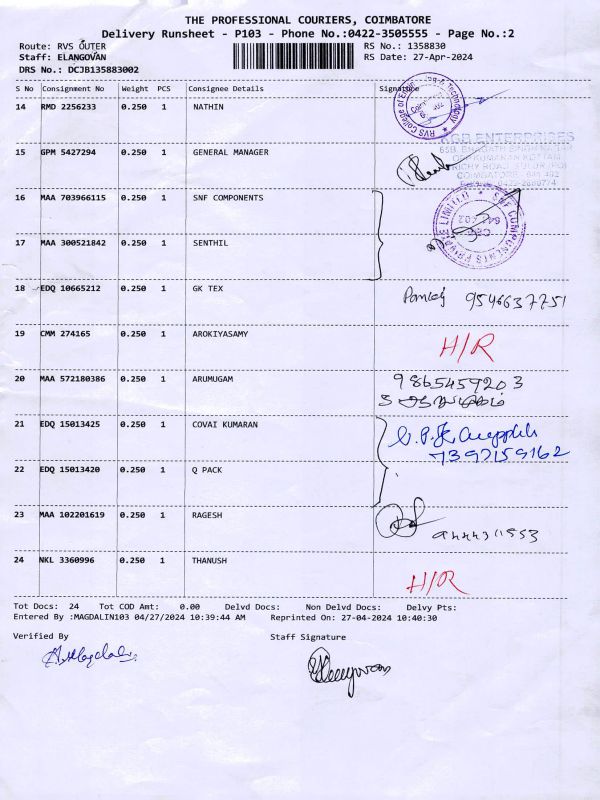 THE PROFESSIONAL COURIERS, COIMBATORE
Delivery Runsheet - P103 - Phone No.:0422-3505555 - Page No.:2
Route: RVS OUTER
RS No.: 1358830
Staff: ELANGOVAN
RS Date: 27-Apr-2024
DRS No.: DCJB135883002
S No Consignment No Weight PCS Consignee Details Signature
14 RMD 2256233 0.250 1 NATHIN
15 GPM 5427294 0.250 1 GENERAL MANAGER
16 MAA 703966115 0.250 1 SNF COMPONENTS
17 MAA 300521842 0.250 1 SENTHIL
18 EDQ 10665212 0.250 1 GK TEX 9546637751
19 CMM 274165 0.250 1 AROKIYASAMY H/R
20 MAA 572180386 0.250 1 ARUMUGAM 9865459203
21 EDQ 15013425 0.250 1 COVAI KUMARAN
7397159162
22 EDQ 15013420 0.250 1 Q PACK
23 MAA 102201619 0.250 1 RAGESH
24 NKL 3360996 0.250 1 THANUSH H/R
Tot Docs: 24 Tot COD Amt: 0.00 Delvd Docs: Non Delvd Docs: Delvy Pts:
Entered By :MAGDALIN103 04/27/2024 10:39:44 AM Reprinted On: 27-04-2024 10:40:30
Verified By Staff Signature